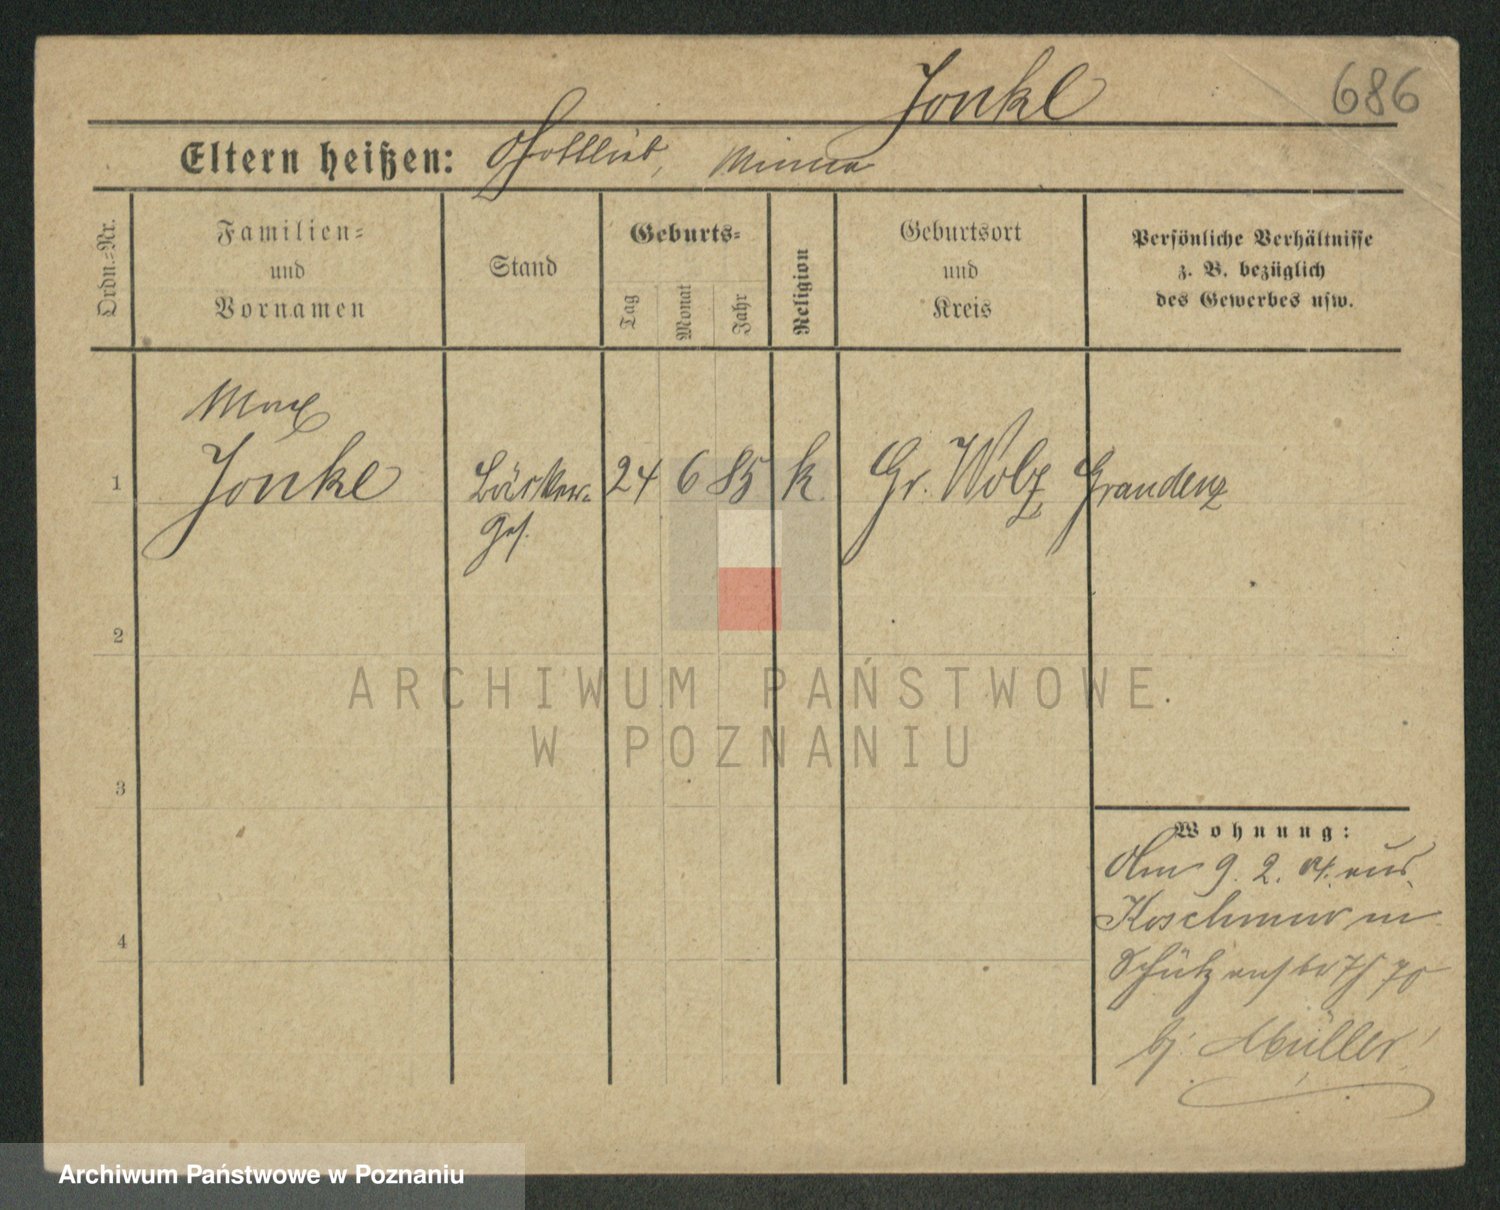 Jonkl
686
Eltern heißen: Gottlieb, Minna
Ordn.-Nr.
Familien-
und
Vornamen
Stand
Geburts-
Tag
Monat
Jahr
Religion
Geburtsort
und
Kreis
Persönliche Verhältnisse
z. B. bezüglich
des Gewerbes usw.
Max
1 Jonkl Bäcker- 24 6 85 k. Gr. Wolz, Graudenz
Ges.
2
ARCHIWUM PAŃSTWOWE
W POZNANIU
3
Wohnung:
Am 9. 2. 04. aus
Koschmin in
4
Schützenstr 70
bj. Müller
Archiwum Państwowe w Poznaniu